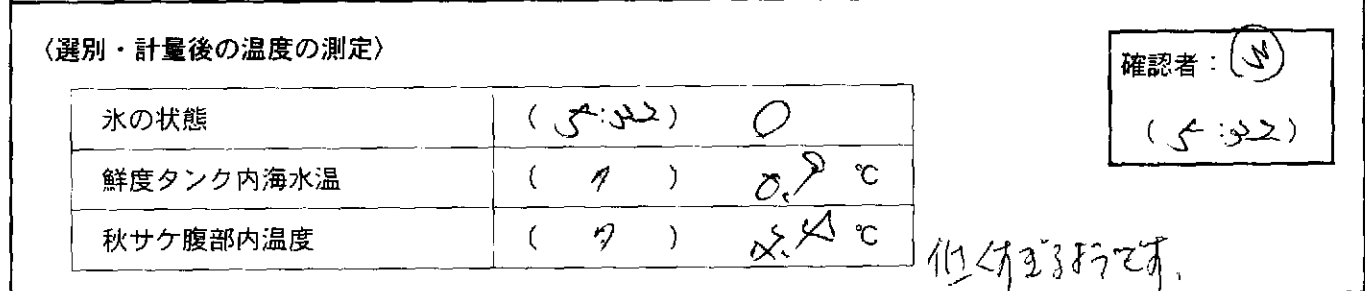 〈選別・計量後の温度の測定〉
確認者：
(5:32)
氷の状態 (5:32) ○
鮮度タンク内海水温 ( 〃 ) 0.9 ℃
秋サケ腹部内温度 ( 〃 ) ℃
低くすぎるようです。